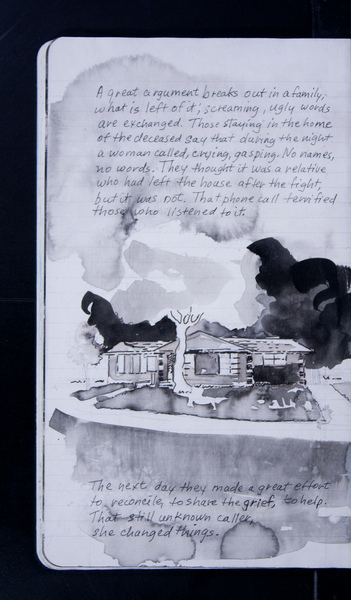 A great argument breaks out in a family,
what is left of it; screaming, ugly words
are exchanged. Those staying in the home
of the deceased say that during the night
a woman called, crying, gasping. No names,
no words. They thought it was a relative
who had left the house after the fight,
but it was not. That phone call terrified
those who listened to it.
The next day they made a great effort
to reconcile, to share the grief, to help.
That still unknown caller,
she changed things.